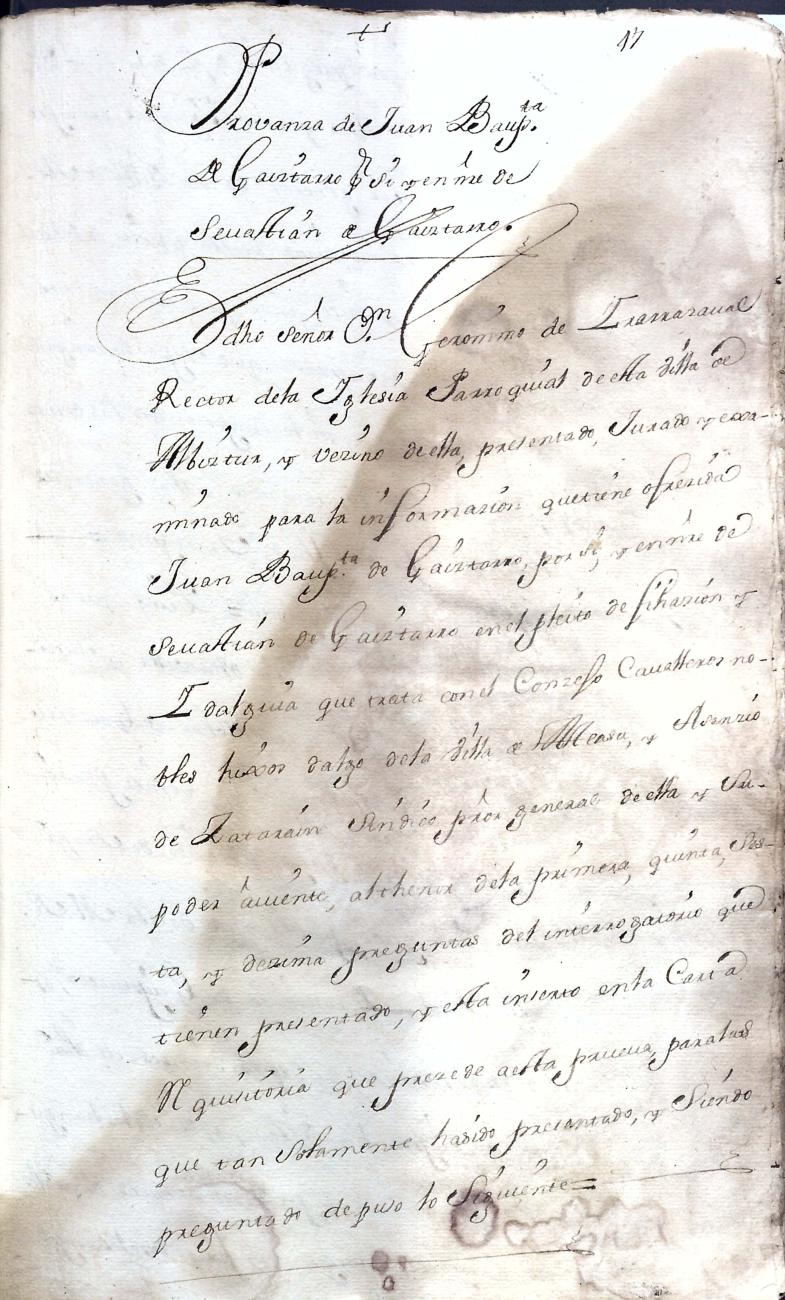 17
Provanza de Juan Baupta.
de Gaiztarro pr. si y en nre de
Sevastian de Gaiztarro.
El dho señor Dn. Geronimo de Irarrazaval
Rector dela Iglesia Parroquial de esta Villa de
Albiztur, y vezino de ella, presentado, Jurado y exa-
minado para la informazion que tiene ofrezida
Juan Baupta. de Gaiztarro, por si, y en nre de
Sevastian de Gaiztarro en el pleito de filiazion y
Idalguia que trata con el Conzejo Cavalleros no-
bles hixos dalgo dela Villa de Alzaga, y Asenzio
de Zatarain Sindico pror general de ella y Su
poder aviente, al thenor dela primera, quinta, Ses-
ta, y dezima preguntas del interrogatorio que
tienen presentado, y esta inserto en la Carta
Rquisitoria que prezede a esta prueva, para las
que tan Solamente ha sido presentado, y Siendo
preguntado depuso lo Siguiente=